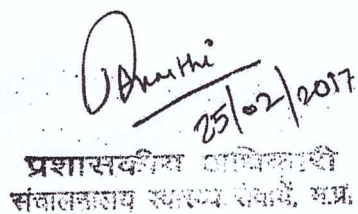 25/02/2017
प्रशासकीय अधिकारी
संचालनालय स्वास्थ्य सेवायें, म.प्र.